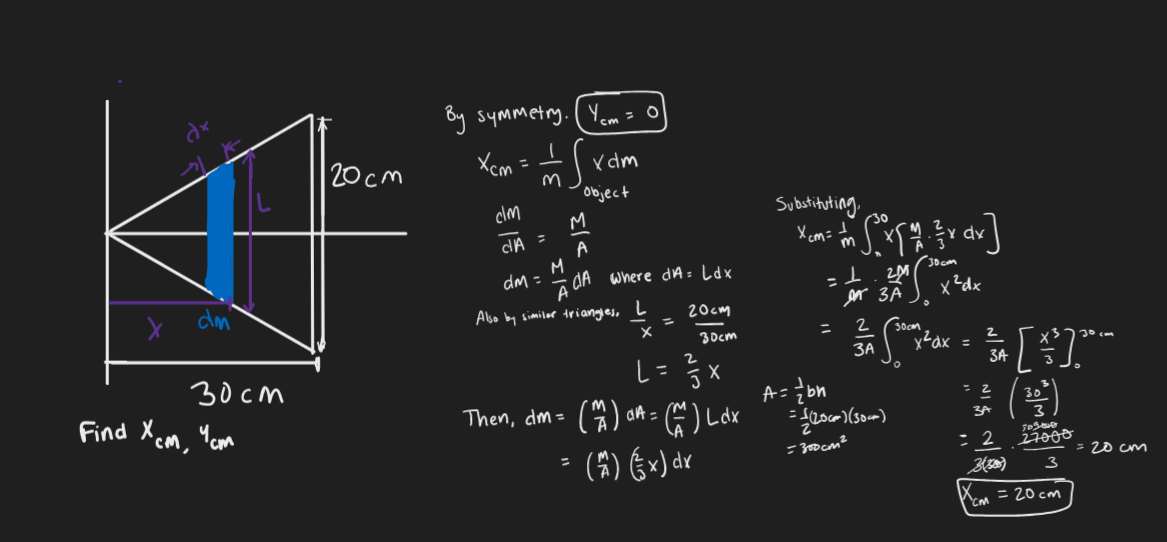 dx
20cm
L
X
dm
30cm
Find X_cm, Y_cm
By symmetry. Y_cm = 0
X_cm = 1/m ∫_object x dm
dm/dA = M/A
dm = M/A dA where dA = L dx
Also by similar triangles, L/x = 20cm/30cm
L = 2/3 x
Then, dm = (M/A) dA = (M/A) L dx
= (M/A) (2/3 x) dx
A = 1/2 bh
= 1/2 (20cm)(30cm)
= 300cm²
Substituting,
X_cm = 1/m ∫_0^30 x [M/A · 2/3 x dx]
= 1/M · 2M/3A ∫_0^30cm x² dx
= 2/3A ∫_0^30cm x² dx = 2/3A [x³/3]_0^30cm
= 2/3A (30³/3)
= 2/3(300) · 27000/3 = 20 cm
X_cm = 20 cm